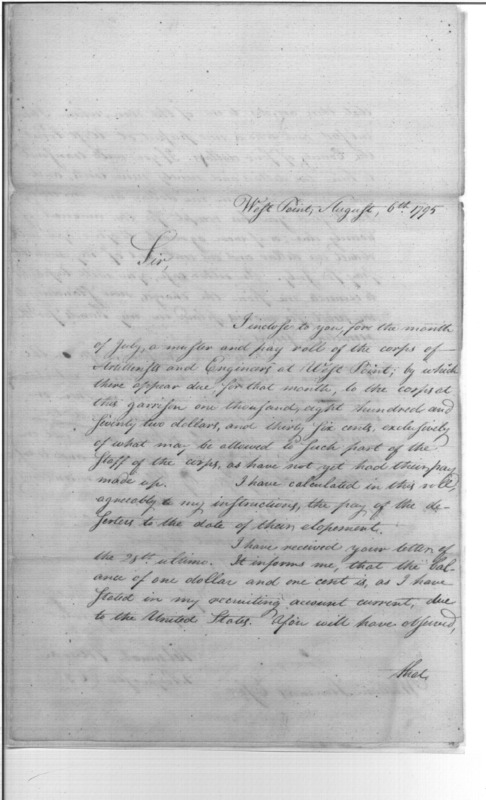 West Point, August, 6th. 1795
Sir,
I inclose to you, for the month
of July, a muster and pay roll of the corps of
Artillerists and Engineers at West Point; by which
there appear due for that month, to the corps at
this garrison one thousand, eight hundred and
seventy two dollars, and thirty six cents, exclusively
of what may be allowed to such part of the
Staff of the corps, as have not yet had their pay
made up. I have calculated in this roll,
agreeably to my instructions, the pay of the de-
serters to the date of their elopement.
I have received your letter of
the ultimo. It informs me, that the bal-
ance of one dollar and one cent is, as I have
stated in my recruiting account current, due
to the United States. You will have observed,
that